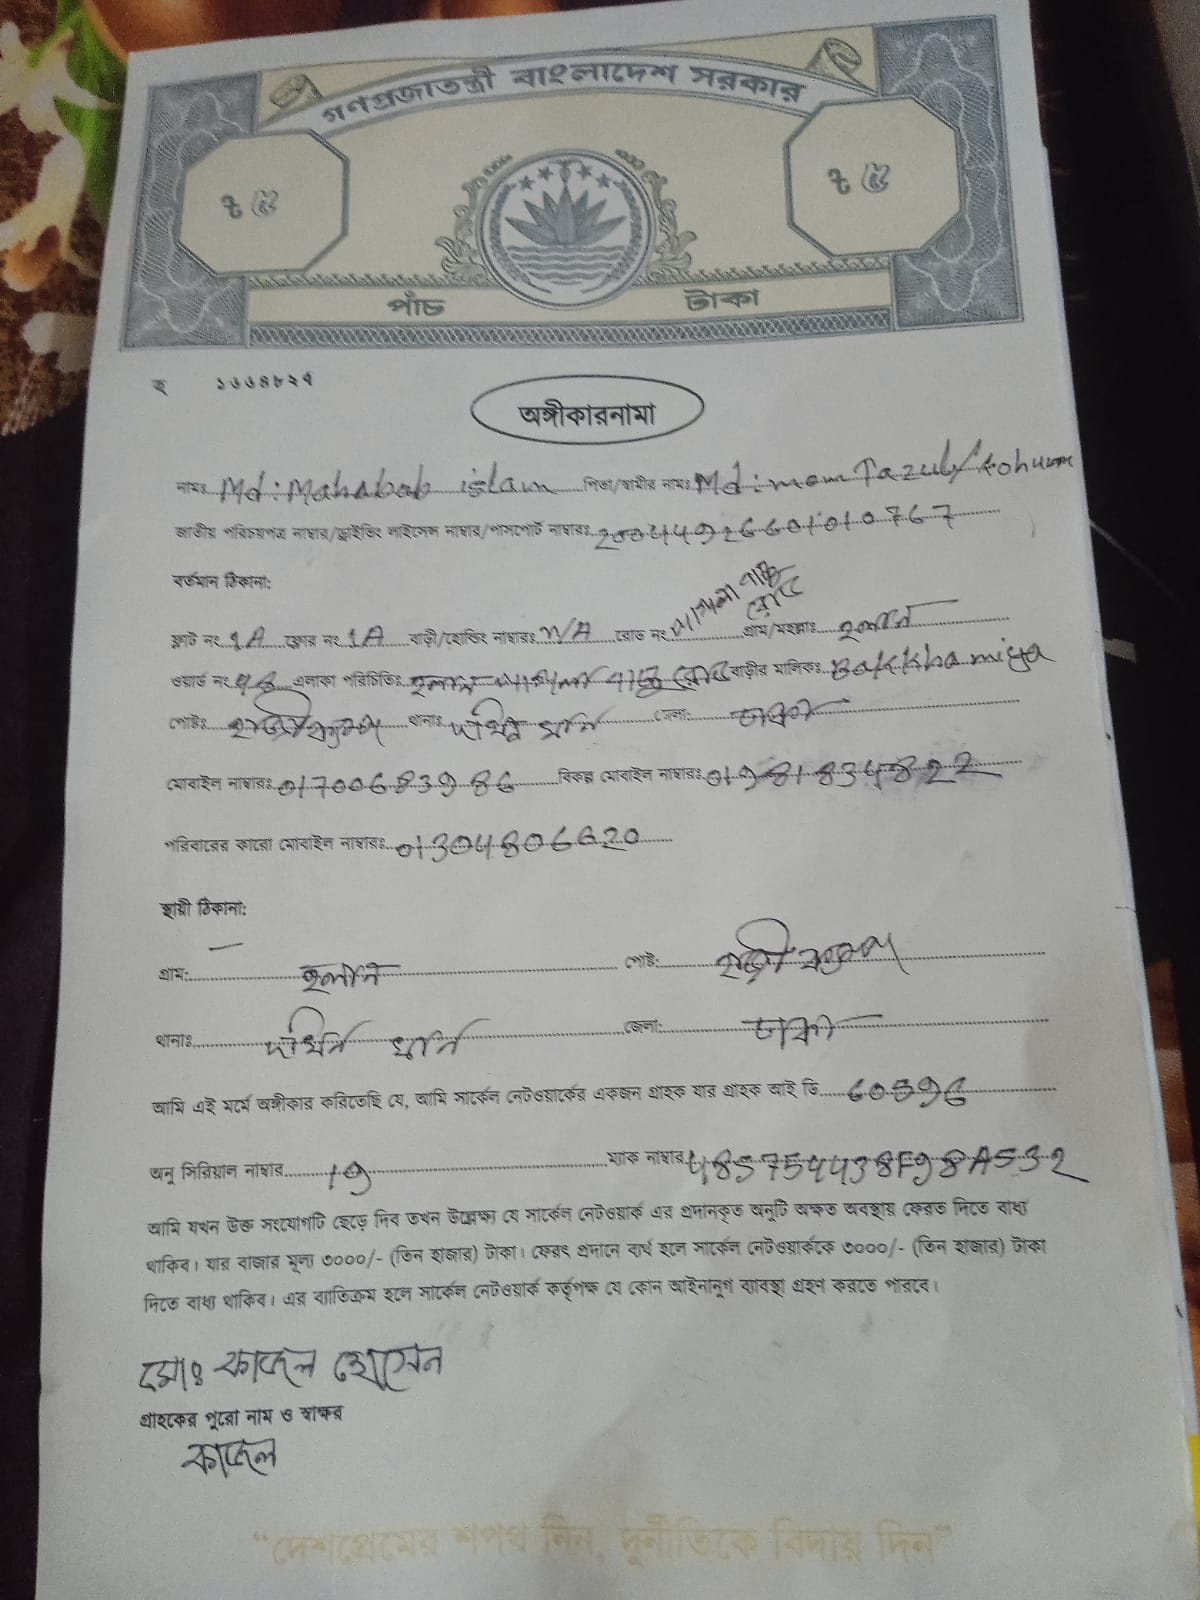 গণপ্রজাতন্ত্রী বাংলাদেশ সরকার
৳ ৫ ৳ ৫
পাঁচ টাকা
১৬৬৪৮২৭
অঙ্গীকারনামা
নামঃ Md: Mahabab islam পিতা/স্বামীর নামঃ Md: mom Tazul
জাতীয় পরিচয়পত্র নাম্বার/ড্রাইভিং লাইসেন্স নাম্বার/পাসপোর্ট নাম্বারঃ
বর্তমান ঠিকানা:
ফ্লাট নং 1A ফ্লোর নং 1A বাড়ী/হোল্ডিং নাম্বারঃ N/A রোড নং গ্রাম/মহল্লাঃ
ওয়ার্ড নং এলাকা পরিচিতিঃ বাড়ীর মালিকঃ Bakkha miya
পোষ্টঃ থানাঃ জেলা: ঢাকা
মোবাইল নাম্বারঃ 01700683986 বিকল্প মোবাইল নাম্বারঃ 01981834822
পরিবারের কারো মোবাইল নাম্বারঃ 01304806620
স্থায়ী ঠিকানা:
গ্রাম: পোষ্ট:
থানাঃ জেলা: ঢাকা
আমি এই মর্মে অঙ্গীকার করিতেছি যে, আমি সার্কেল নেটওয়ার্কের একজন গ্রাহক যার গ্রাহক আই ডি 60596
অনু সিরিয়াল নাম্বার 19 ম্যাক নাম্বার 485754438F98A532
আমি যখন উক্ত সংযোগটি ছেড়ে দিব তখন উল্লেক্ষ্য যে সার্কেল নেটওয়ার্ক এর প্রদানকৃত অনুটি অক্ষত অবস্থায় ফেরত দিতে বাধ্য
থাকিব। যার বাজার মূল্য ৩০০০/- (তিন হাজার) টাকা। ফেরৎ প্রদানে ব্যর্থ হলে সার্কেল নেটওয়ার্ককে ৩০০০/- (তিন হাজার) টাকা
দিতে বাধ্য থাকিব। এর ব্যাতিক্রম হলে সার্কেল নেটওয়ার্ক কর্তৃপক্ষ যে কোন আইনানুগ ব্যাবস্থা গ্রহণ করতে পারবে।
মোঃ কাজল হোসেন
গ্রাহকের পুরো নাম ও স্বাক্ষর
কাজল
“দেশপ্রেমের শপথ নিন, দুর্নীতিকে বিদায় দিন”